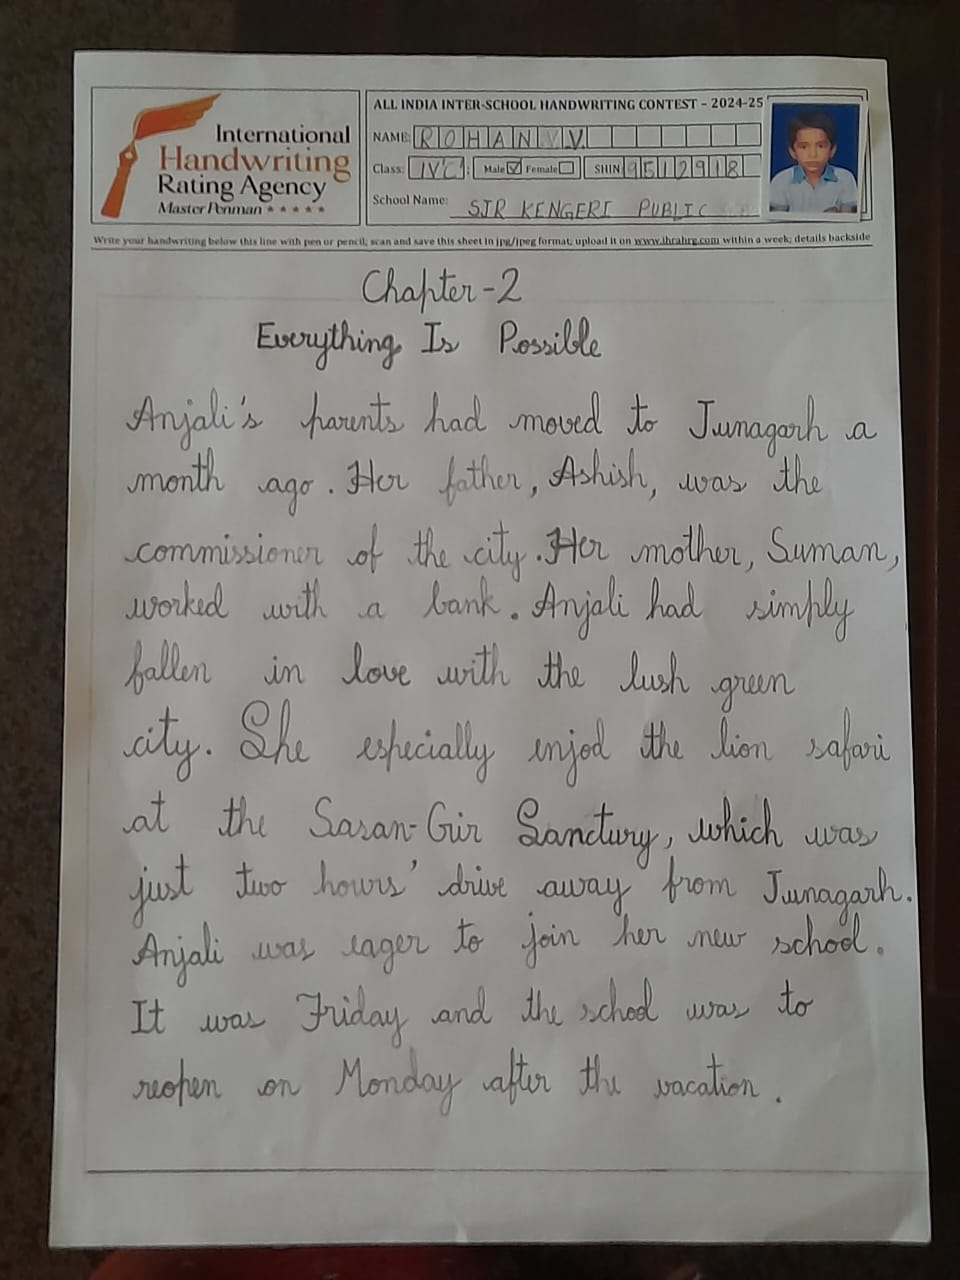 International
Handwriting
Rating Agency
Master Penman ★ ★ ★ ★ ★
ALL INDIA INTER-SCHOOL HANDWRITING CONTEST – 2024-25
NAME: ROHAN V V
Class: IV'C' Male ☑ Female ☐ SHIN 9512918
School Name: SJR KENGERI PUBLIC
Write your handwriting below this line with pen or pencil; scan and save this sheet in jpg/jpeg format; upload it on www.ihrahrg.com within a week; details backside
Chapter-2
Everything Is Possible
Anjali's parents had moved to Junagarh a
month ago. Her father, Ashish, was the
commissioner of the city. Her mother, Suman,
worked with a bank. Anjali had simply
fallen in love with the lush green
city. She especially enjod the lion safari
at the Sasan-Gir Sanctury, which was
just two hours' drive away from Junagarh.
Anjali was eager to join her new school.
It was Friday and the school was to
reopen on Monday after the vacation.